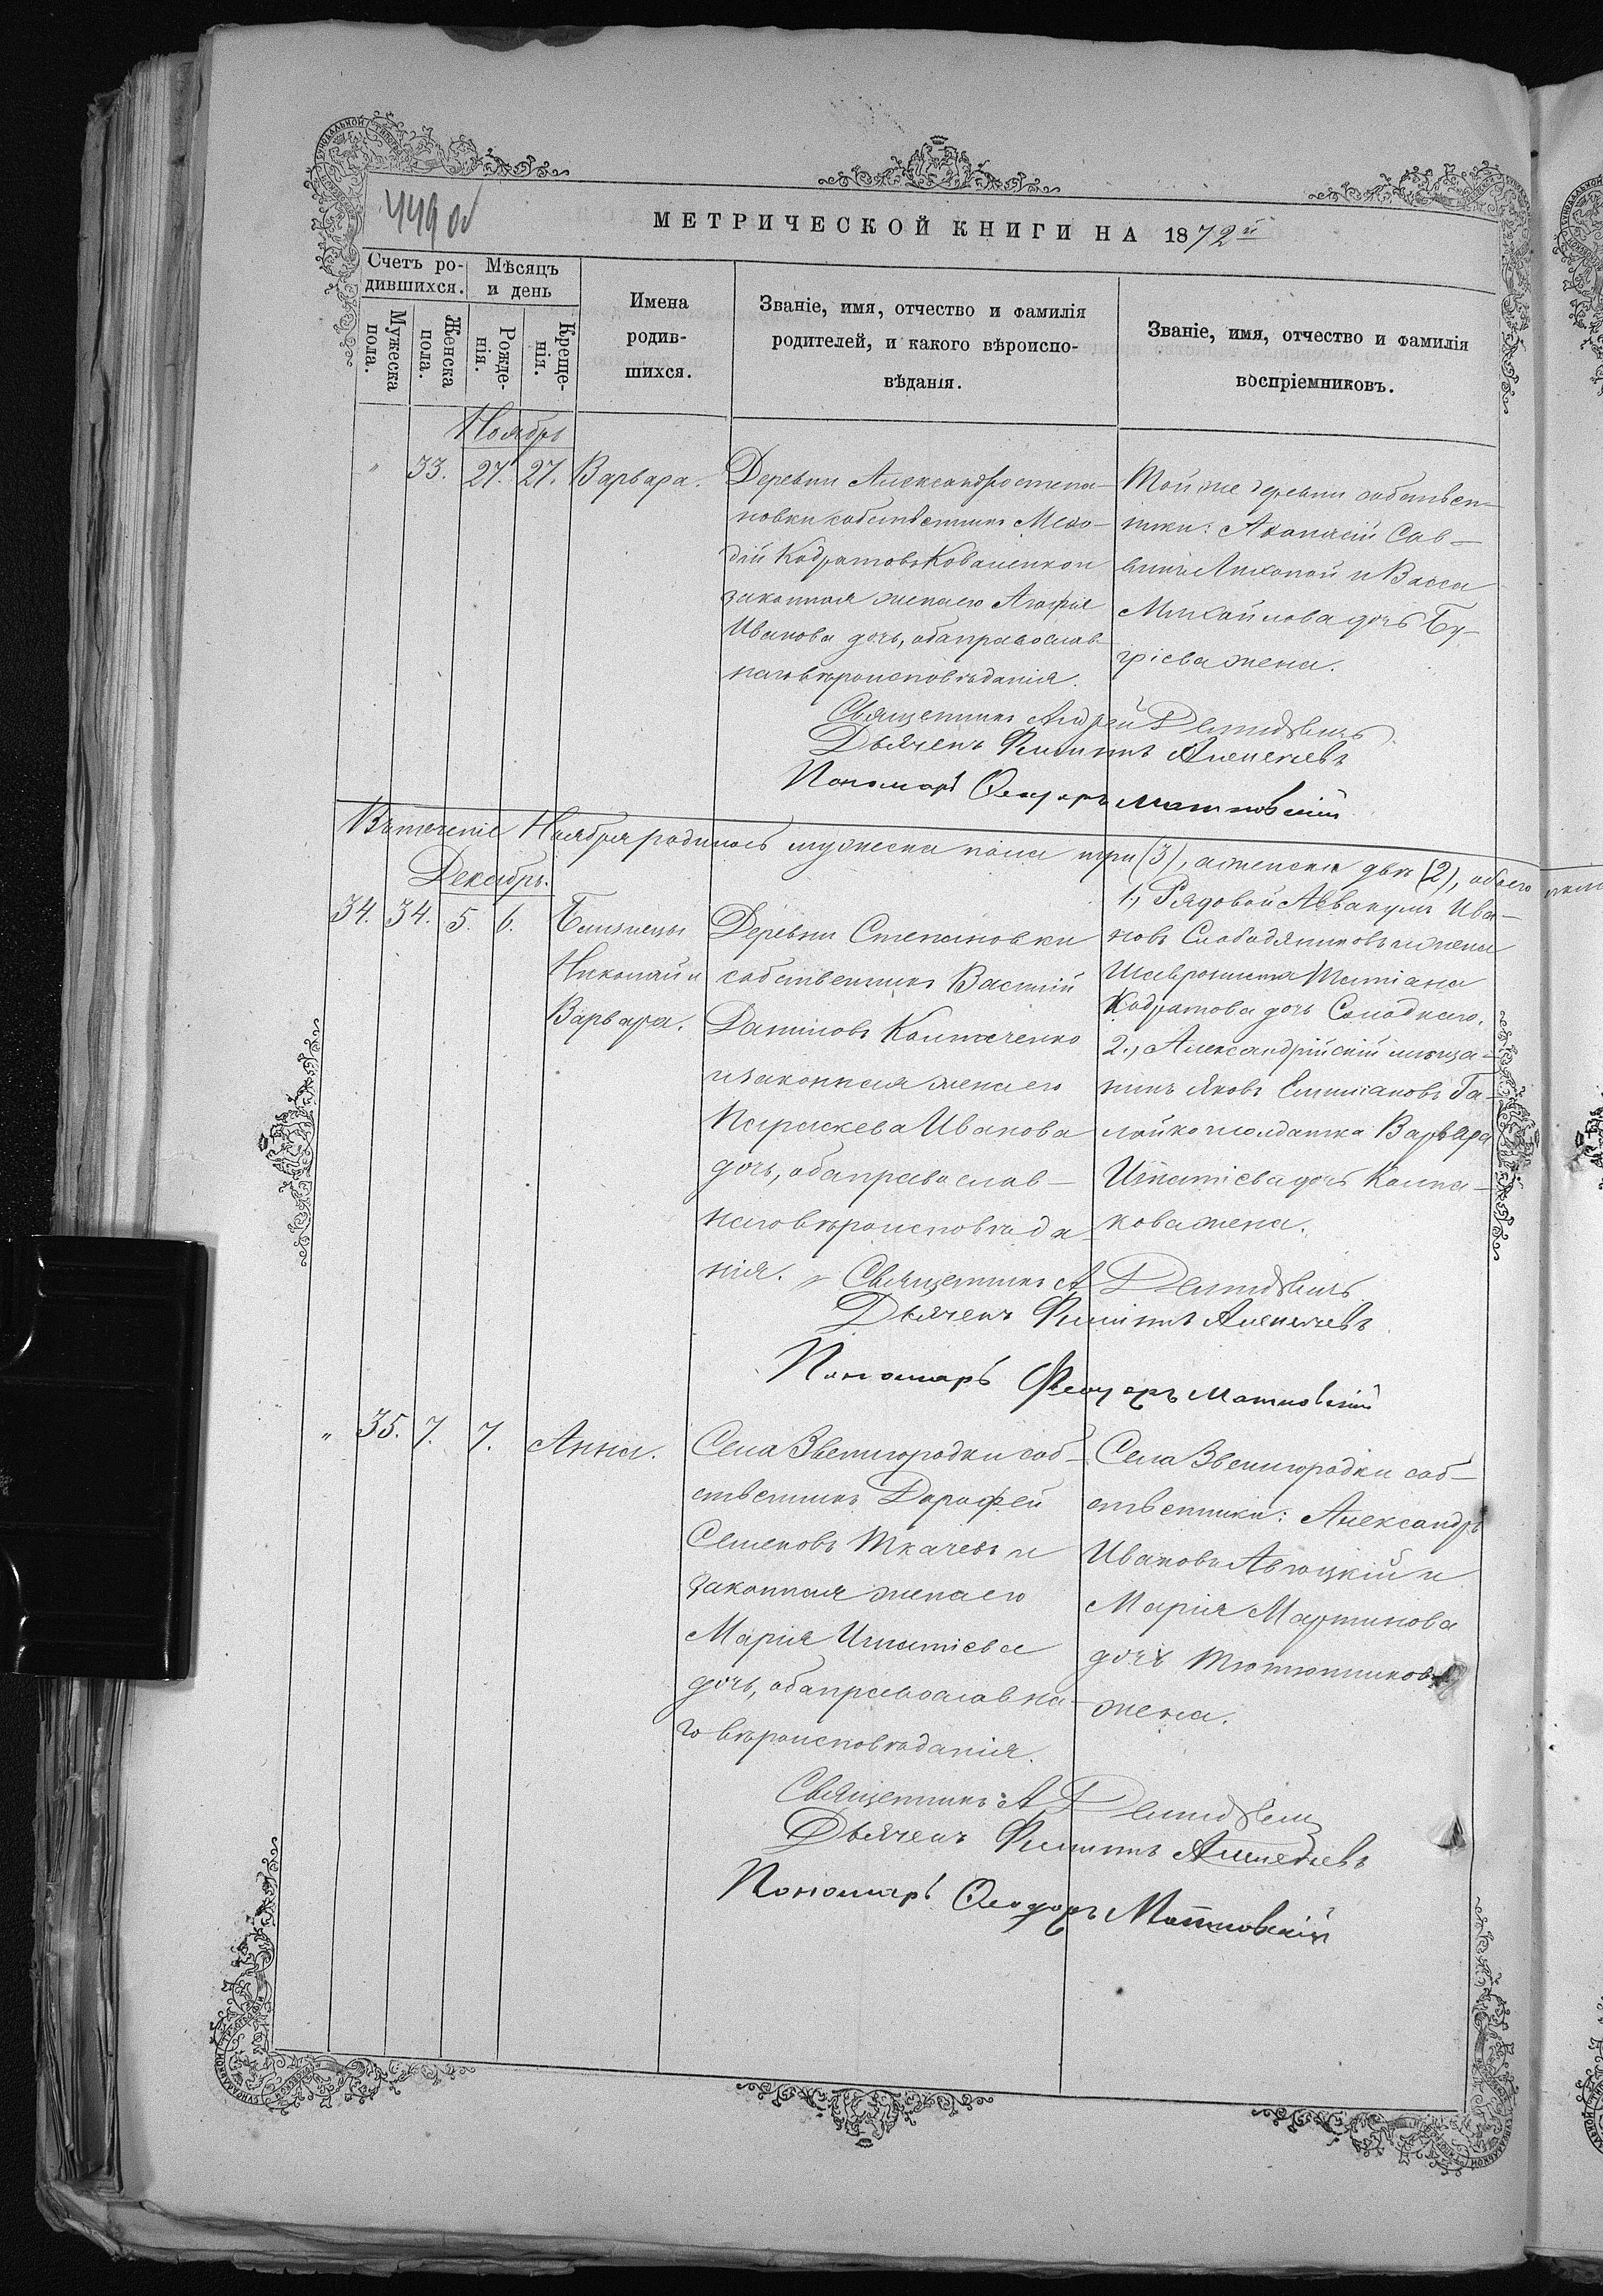 449 об
МЕТРИЧЕСКОЙ КНИГИ НА 1872й
Счетъ ро-
дившихся.
Мѣсяцъ
и день
Мужеска
пола.
Женска
пола.
Рожде-
нія.
Креще-
нія.
Имена
родив-
шихся.
Званіе, имя, отчество и фамилія
родителей, и какого вѣроиспо-
вѣданія.
Званіе, имя, отчество и фамилія
воспріемниковъ.
Ноябрь
" 33. 27. 27. Варвара.
Деревни Александростепа-
новки собственникъ Меѳо-
дій Кодратовъ Коваленко и
законная жена его Агафія
Иванова дочь, оба православ-
наго вѣроисповѣданія.
Той же деревни собствен-
ники: Аѳанасій Сав-
винъ и Васса
Михайлова дочь Бу-
гріева жена.
Священникъ Андрей Демидовичъ
Дьячекъ Филиппъ Алексѣевъ
Пономарь Ѳеодоръ Матковскій
Въ теченіе Ноября родилось мужеска пола три (3), а женска два (2), обоего
Декабрь.
34. 34. 5. 6.
Близнецы
Николай и
Варвара.
Деревни Степановки
собственникъ Василій
Даниловъ Колтаченко
и законная жена его
Параскева Иванова
дочь, оба православ-
наго вѣроисповѣда
нія.
1., Рядовой Аввакумъ Ива-
новъ Слободяниковъ и жена
Татіана
Кодратова дочь Солодкаго.
2., Александрійскій мѣща-
нинъ Яковъ Га-
лайко и солдатка Варвара
Игнатіева дочь Колпа-
кова жена.
Священникъ А Демидовичъ
Дьячекъ Филиппъ Алексѣевъ
Пономарь Ѳеодоръ Матковскій
" 35. 7. 7. Анна.
Села Звенигородки соб-
ственникъ Дорофей
Семеновъ Ткачевъ и
законная жена его
Марія Игнатіева
дочь, оба православна-
го вѣроисповѣданія.
Села Звенигородки соб-
ственники: Александръ
Ивановъ и
Марія Мартинова
дочь Тютюнникова
жена.
Священникъ А Демидовичъ
Дьячекъ Филиппъ Алексѣевъ
Пономарь Ѳеодоръ Матковскій